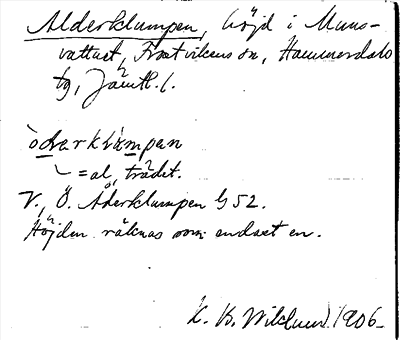 Alderklumpen, höjd i Muns-
vattnet, Frostvikens sn, Hammerdals
tg, Jämtl. l.
òderklùmpen
= al, trädet.
V., Ö. Åderklumpen G 52.
Höjden räknas som endast en.
K. B. Wiklund 1906